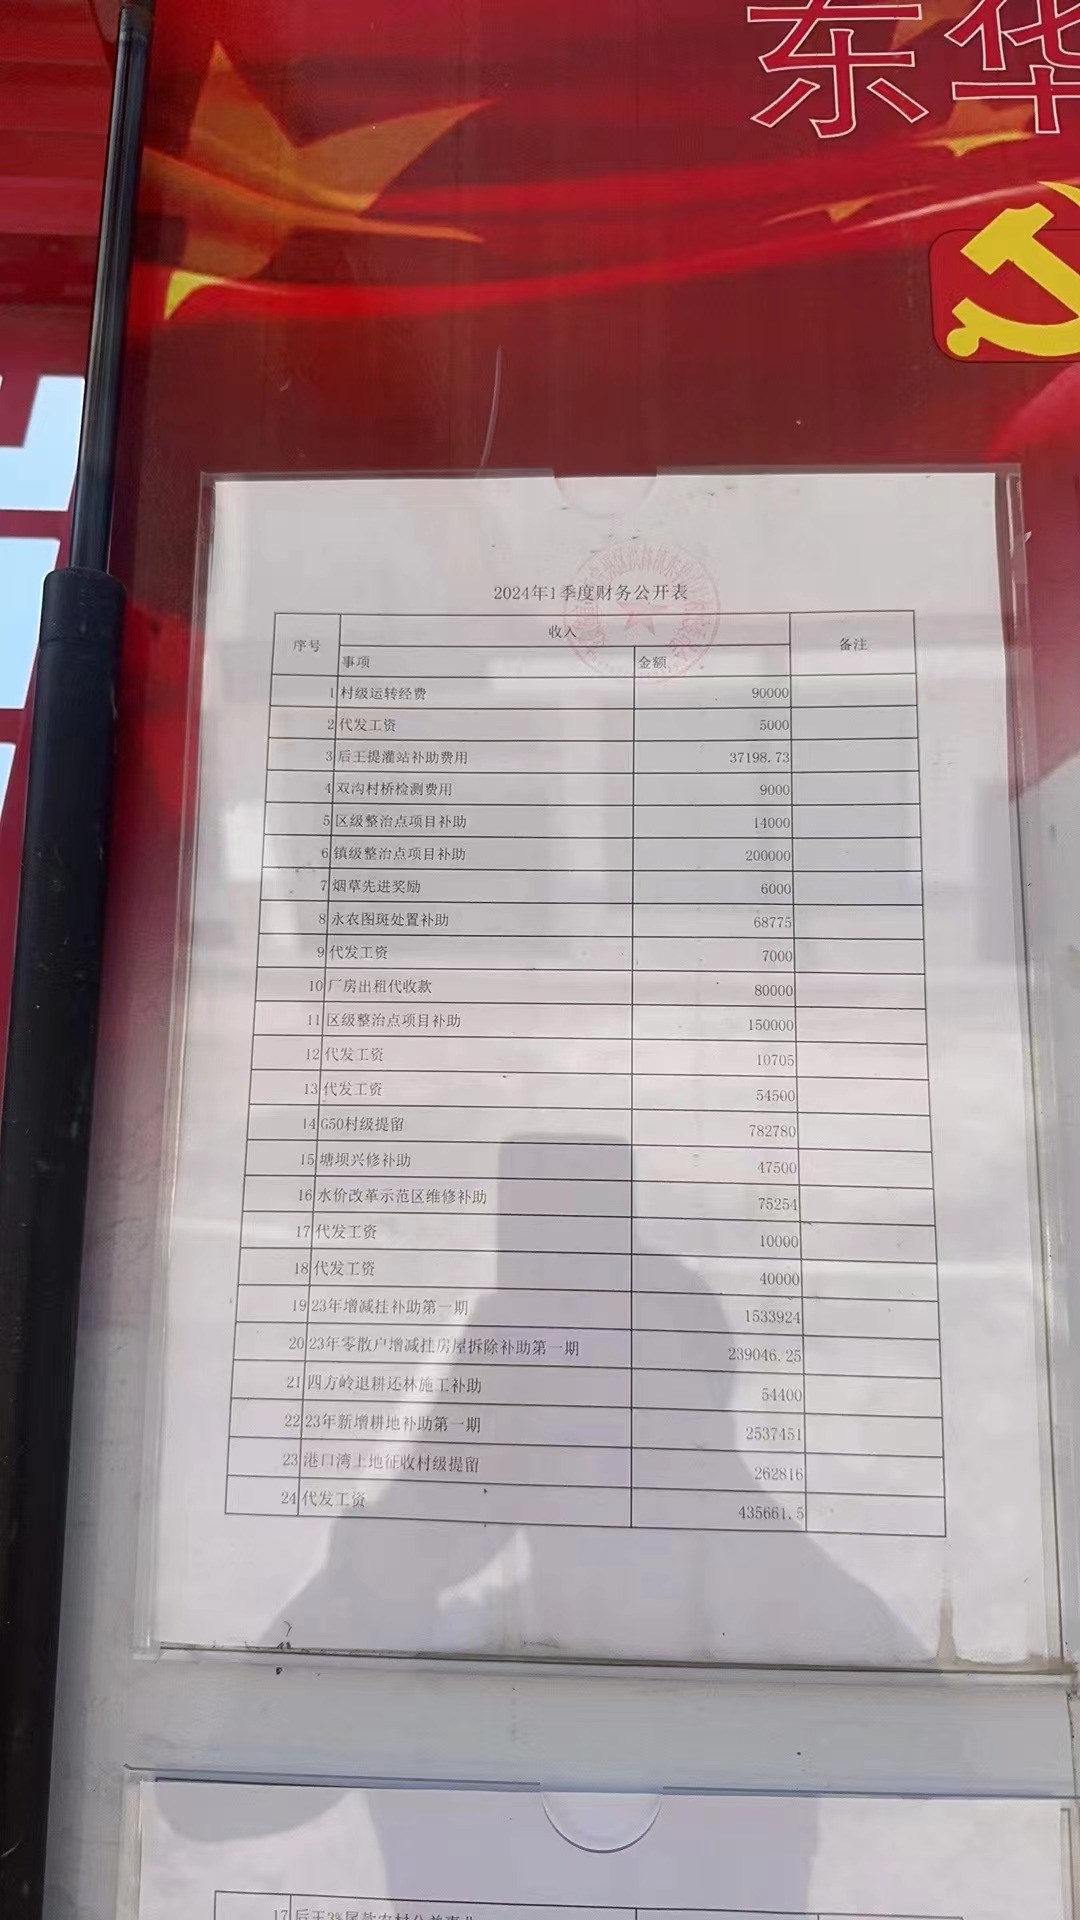 东华
2024年1季度财务公开表
序号 收入 备注
事项 金额
1 村级运转经费 90000
2 代发工资 5000
3 后王提灌站补助费用 37198.73
4 双沟村桥检测费用 9000
5 区级整治点项目补助 14000
6 镇级整治点项目补助 200000
7 烟草先进奖励 6000
8 永农图斑处置补助 68775
9 代发工资 7000
10 厂房出租代收款 80000
11 区级整治点项目补助 150000
12 代发工资 10705
13 代发工资 54500
14 G50村级提留 782780
15 塘坝兴修补助 47500
16 水价改革示范区维修补助 75254
17 代发工资 10000
18 代发工资 40000
19 23年增减挂补助第一期 1533924
20 23年零散户增减挂房屋拆除补助第一期 239046.25
21 四方岭退耕还林施工补助 54400
22 23年新增耕地补助第一期 2537451
23 港口湾土地征收村级提留 262816
24 代发工资 435661.5
17 后王3%尾款农村公益事业